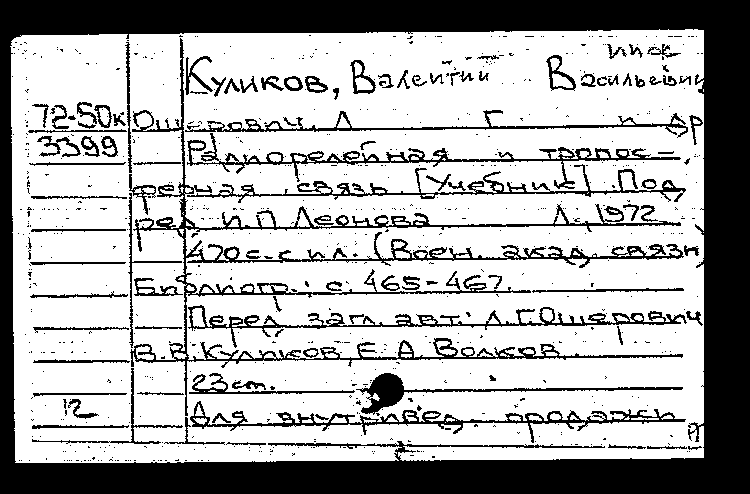 Куликов, Валентин Васильевич
72-50к Ошерович, Л Г и др
3399 Радиорелейная и тропос-
ферная связь [Учебник] Под
ред И.П Леонова Л., 1972
470 с. с ил. (Воен. акад. связи)
Библиогр.: с. 465-467.
Перед загл. авт.: Л.Г. Ошерович
В.В. Куликов, Е. А. Волков.
23 см.
12 Для внутривед. продажи